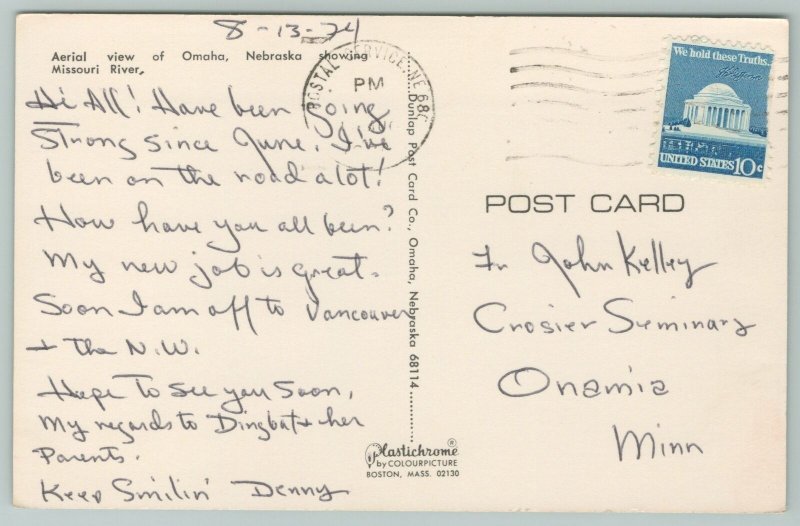 8-13-74
Aerial view of Omaha, Nebraska showing
Missouri River.
Hi All! Have been going
Strong since June. I've
been on the road a lot!
How have you all been?
My new job is great.
Soon I am off to Vancouver
+ the N.W.
Hope to see you soon,
My regards to Dingbat + her
Parents.
Keep Smilin' Denny
POSTAL SERVICE, NE 680
PM
Dunlap Post Card Co., Omaha, Nebraska 68114
Plastichrome®
by COLOURPICTURE
BOSTON, MASS. 02130
We hold these Truths...
UNITED STATES 10c
POST CARD
Fr John Kelley
Crosier Seminary
Onamia
Minn